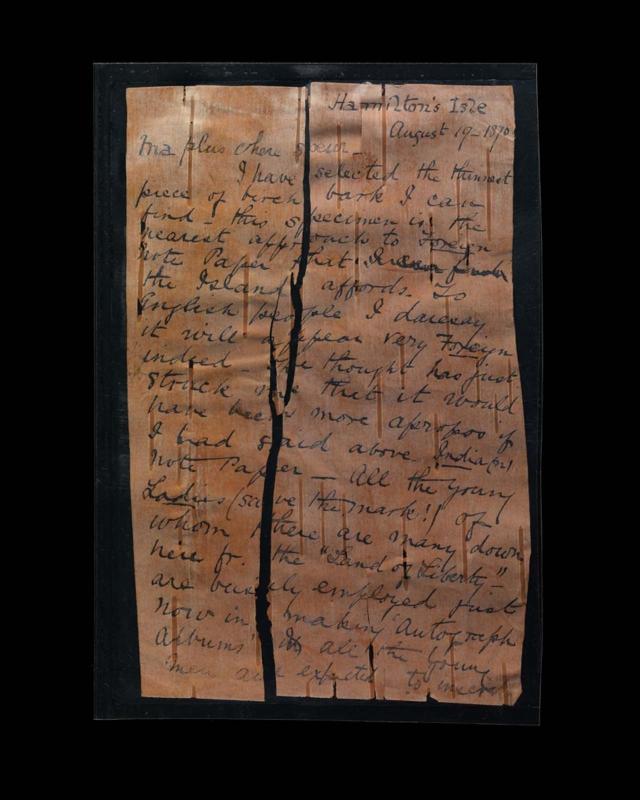 Hamilton's Isle
August 19 - 1890
Ma plus chere soeur -
I have selected the thinnest
piece of birch bark I can
find - this specimen is the
nearest approach to Foreign
Note Paper that
the Island affords. To
English people I daresay
it will appear very Foreign
indeed - The thought has just
struck me that it would
have been more apropos if
I had said above India(n)
Note Paper - All the young
Ladies (save the mark!) of
whom there are many down
here fr. the "Land of Liberty" -
are busily employed just
now in making "Autograph
Albums" all the young
men are expected to insert